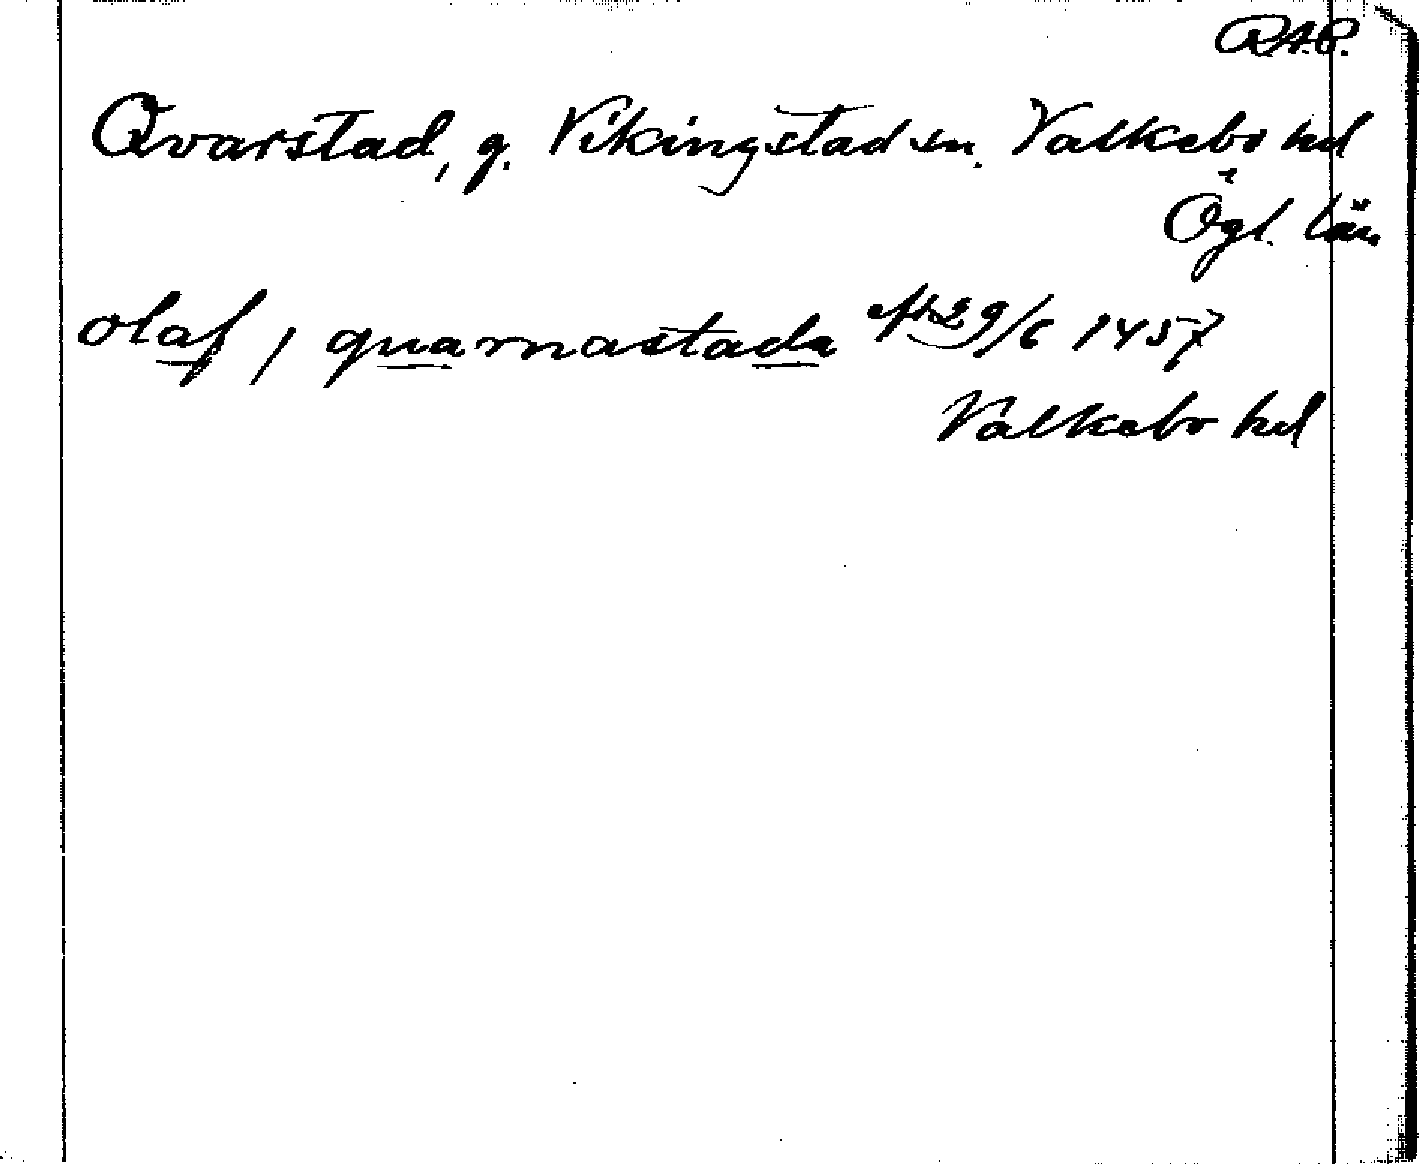 RAP.
Qvarstad, g. Vikingstad sn. Valkebo hd
Ögl. län
olaf i quarnastada afskr 29/6 1457
Valkebo hd